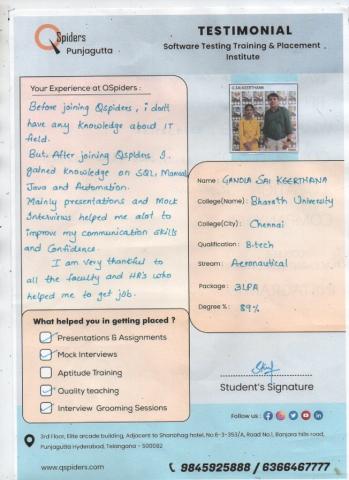 QSpiders
Punjagutta
TESTIMONIAL
Software Testing Training & Placement
Institute
Your Experience at QSpiders :
Before joining Qspiders, i don't
have any knowledge about IT
field.
But, After joining Qspiders I
gained knowledge on SQL, Manual
Java and Automation.
Mainly presentations and Mock
Interviews helped me alot to
improve my communication skills
and Confidence.
I am very thankful to
all the faculty and HR's who
helped me to get job.
G.SAI KEERTHANA
Name : GANDLA SAI KEERTHANA
College(Name) : Bharath University
College(City) : Chennai
Qualification : B.tech
Stream : Aeronautical
Package : 3LPA
Degree % : 89%
What helped you in getting placed ?
Presentations & Assignments
Mock Interviews
Aptitude Training
Quality teaching
Interview Grooming Sessions
Student's Signature
Follow us :
3rd Floor, Elite arcade building, Adjacent to Shanbhag hotel, No.6-3-353/A, Road No.1, Banjara hills road,
Punjagutta Hyderabad, Telangana - 500082
www.qspiders.com
9845925888 / 6366467777